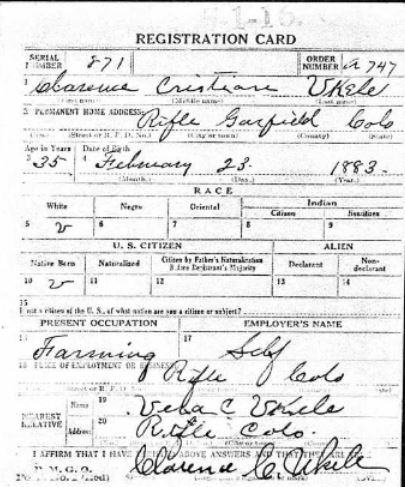 9-1-16.
REGISTRATION CARD
SERIAL NUMBER 871 ORDER NUMBER A 747
1 Clarence Cristian Ukele
(First name) (Middle name) (Last name)
2 PERMANENT HOME ADDRESS:
Rifle Garfield Colo
(No.) (Street or R. F. D. No.) (City or town) (County) (State)
Age in Years Date of Birth
3 35 4 February 23 1883.
(Month.) (Day.) (Year.)
RACE
White Negro Oriental Indian
Citizen Noncitizen
5 v 6 7 8 9
U. S. CITIZEN ALIEN
Native Born Naturalized Citizen by Father's Naturalization Before Registrant's Majority Declarant Non-declarant
10 v 11 12 13 14
15
If not a citizen of the U. S., of what nation are you a citizen or subject?
PRESENT OCCUPATION EMPLOYER'S NAME
16 Farming 17 Self
18 PLACE OF EMPLOYMENT OR BUSINESS
Rifle Colo
NEAREST RELATIVE Name 19 C Ukele
Address 20 Rifle Colo.
I AFFIRM THAT I HAVE ABOVE ANSWERS AND THAT THEY ARE
P. M. G. O.
Clarence C. Ukele